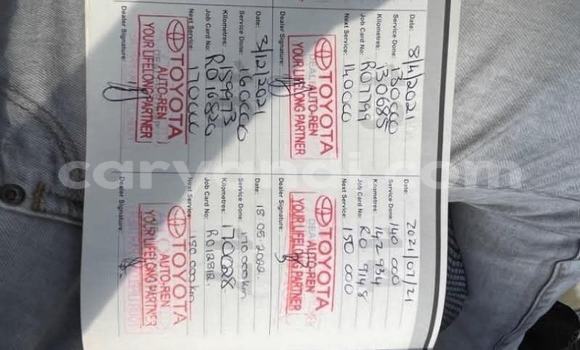 Date: 8/4/2021
Service Done: 130000
Kilometres: 130685
Job Card No: RO7799
Next Service: 140000
Dealer Signature:
TOYOTA
AUTO-REN
YOUR LIFELONG PARTNER
Date: 2021/07/21
Service Done: 140 000
Kilometres: 142 934
Job Card No: RO 9148
Next Service: 150 000
Dealer Signature:
TOYOTA
AUTO-REN
YOUR LIFELONG PARTNER
Date: 3/12/2021
Service Done: 160000
Kilometres: 159973
Job Card No: RO10820
Next Service: 170000
Dealer Signature:
TOYOTA
AUTO-REN
YOUR LIFELONG PARTNER
Date: 18 05 2022
Service Done: 170 000km
Kilometres: 170028
Job Card No: RO12812
Next Service: 180 000km
Dealer Signature:
TOYOTA
AUTO-REN
YOUR LIFELONG PARTNER